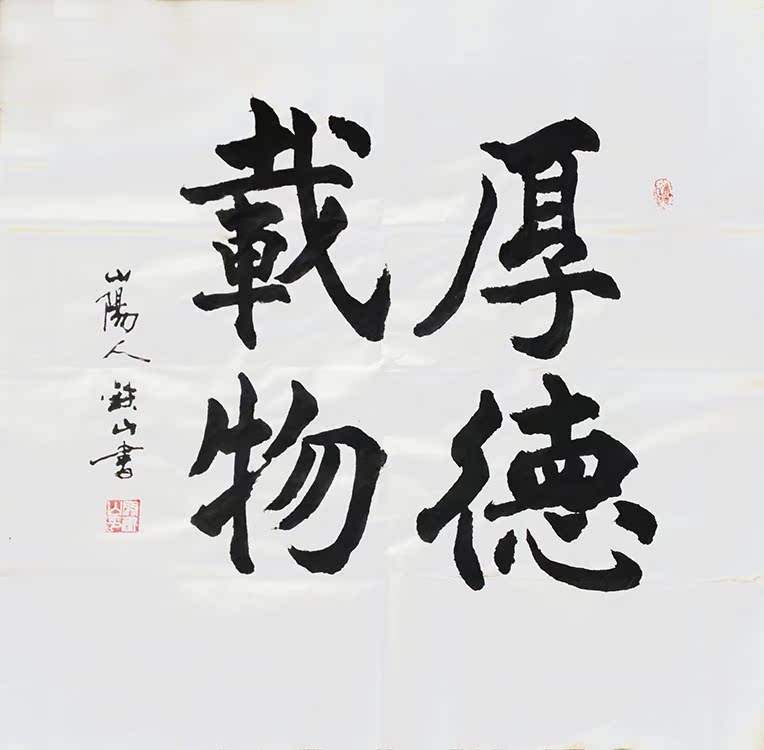 厚德
載物
山陽人鐵山書